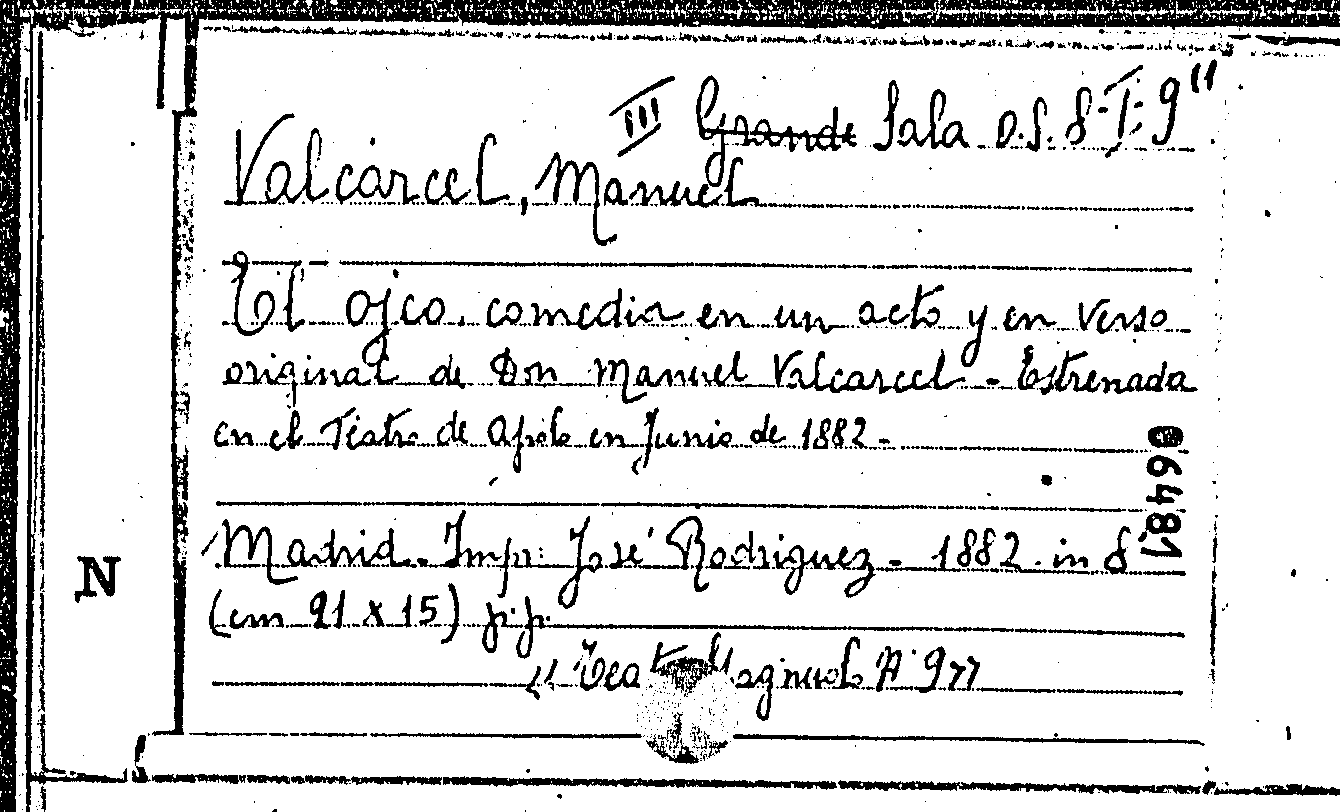 III ~~Grande~~ Sala D.S. 8-I-9"
Valcárcel, Manuel
El ojeo. comedia en un acto y en verso
original de Don Manuel Valcarcel - Estrenada
en el Teatro de Apolo en Junio de 1882 -
06481
Madrid - Impr. José Rodriguez - 1882 - in 8°
(cm 21 x 15) p.p.
N
« A 9 »